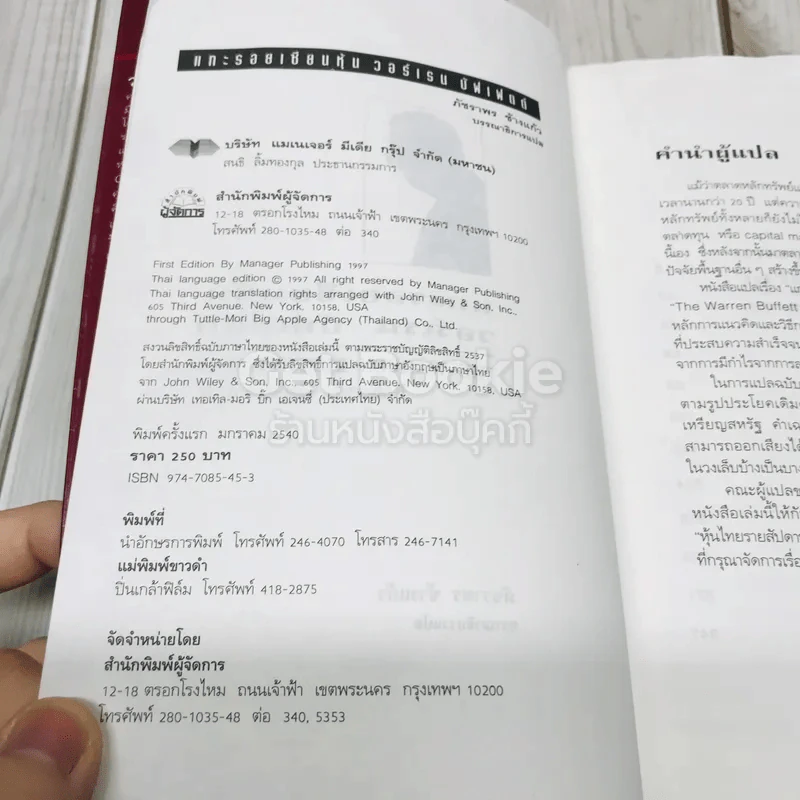 แกะรอยเซียนหุ้น วอร์เรน บัฟเฟตต์
ภัชราพร ช้างแก้ว
บรรณาธิการแปล
บริษัท แมเนเจอร์ มีเดีย กรุ๊ป จำกัด (มหาชน)
สนธิ ลิ้มทองกุล ประธานกรรมการ
สำนักพิมพ์
ผู้จัดการ
สำนักพิมพ์ผู้จัดการ
12-18 ตรอกโรงไหม ถนนเจ้าฟ้า เขตพระนคร กรุงเทพฯ 10200
โทรศัพท์ 280-1035-48 ต่อ 340
First Edition By Manager Publishing 1997
Thai language edition © 1997 All right reserved by Manager Publishing
Thai language translation rights arranged with John Wiley & Son, Inc.,
605 Third Avenue. New York. 10158, USA
through Tuttle-Mori Big Apple Agency (Thailand) Co., Ltd.
สงวนลิขสิทธิ์ฉบับภาษาไทยของหนังสือเล่มนี้ ตามพระราชบัญญัติลิขสิทธิ์ 2537
โดยสำนักพิมพ์ผู้จัดการ ซึ่งได้รับลิขสิทธิ์การแปลฉบับภาษาอังกฤษเป็นภาษาไทย
จาก John Wiley & Son, Inc. 605 Third Avenue, New York, 10158, USA
ผ่านบริษัท เทอเทิล-มอริ บิ๊ก เอเจนซี่ (ประเทศไทย) จำกัด
ร้านหนังสือบุ๊คกี้
พิมพ์ครั้งแรก มกราคม 2540
ราคา 250 บาท
ISBN 974-7085-45-3
พิมพ์ที่
นำอักษรการพิมพ์ โทรศัพท์ 246-4070 โทรสาร 246-7141
แม่พิมพ์ขาวดำ
ปิ่นเกล้าฟิล์ม โทรศัพท์ 418-2875
จัดจำหน่ายโดย
สำนักพิมพ์ผู้จัดการ
12-18 ตรอกโรงไหม ถนนเจ้าฟ้า เขตพระนคร กรุงเทพฯ 10200
โทรศัพท์ 280-1035-48 ต่อ 340, 5353
คำนำผู้แปล
แม้ว่าตลาดหลักทรัพย์แ
เวลานานกว่า 20 ปี แต่ควา
หลักทรัพย์ทั้งหลายก็ยังไม่
ตลาดทุน หรือ capital ma
นี้เอง ซึ่งหลังจากนั้นมาตลา
ปัจจัยพื้นฐานอื่น ๆ สร้างขึ้
หนังสือแปลเรื่อง "แก
"The Warren Buffett
หลักการแนวคิดและวิธีกา
ที่ประสบความสำเร็จจน
จากการมีกำไรจากการล
ในการแปลฉบับ
ตามรูปประโยคเดิม
เหรียญสหรัฐ คำเฉ
สามารถออกเสียงได้
ในวงเล็บบ้างเป็นบาง
คณะผู้แปลข
หนังสือเล่มนี้ให้กั
"หุ้นไทยรายสัปดา
ที่กรุณาจัดการเรื่อ